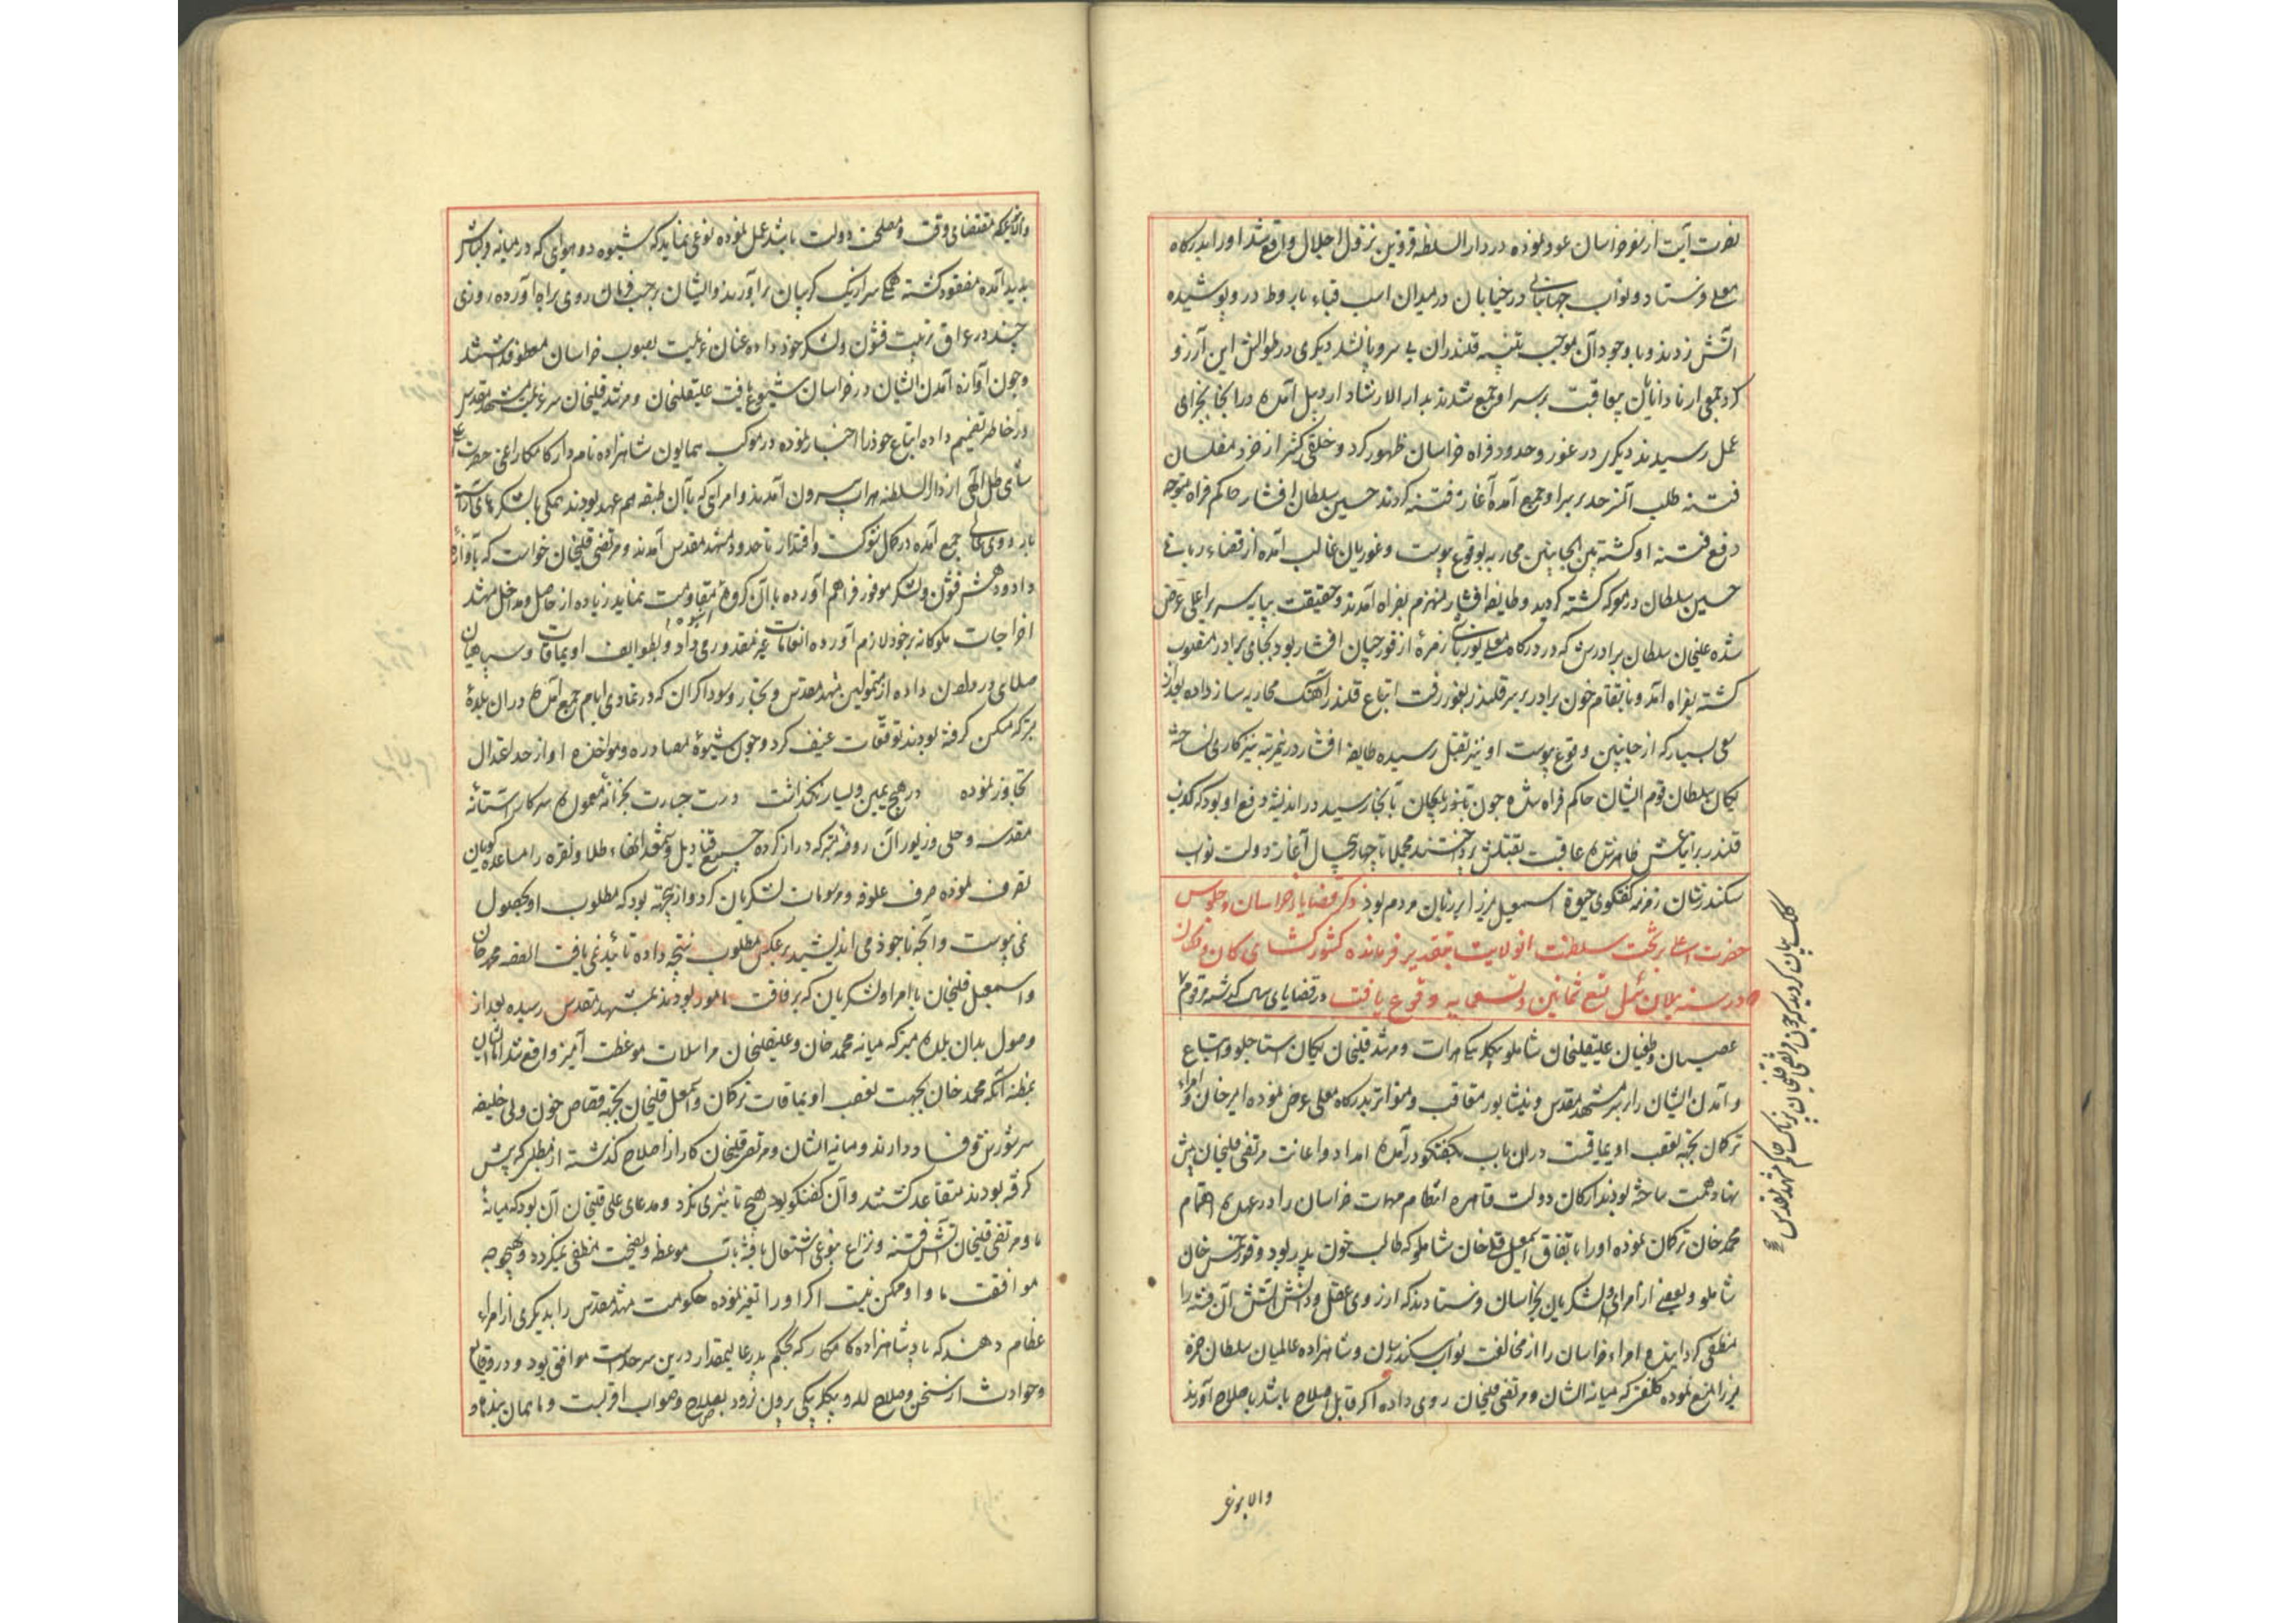 نصرت آیت از سفر خراسان عود نموده در دار السلطنه قزوین نزول اجلال واقع شد او را بدرگاه
معلی فرستاد و نواب جهانبانی در خیابان در میدان اسب قباء باروط درو پوشیده
آتش زدند و با وجود آن موجب تنبه قلندران بی سر و پا نشد دیگری در طوالش این آرزو
کرد جمعی از نادانان بر سر او جمع شدند بدار الارشاد اردبیل آمده در آنجا بجزای
عمل رسیدند دیگری در غور و حدود فراه خراسان ظهور کرد و خلقی کثیر از خرد مفلسان
فتنه طلب آنحد بر سر او جمع آمده آغاز فتنه کردند حسین سلطان افشار حاکم فراه متوجه
دفع فتنه او گشته بین الجانبین محاربه بوقوع پیوست و غوریان غالب آمده از قضاء ربانی
حسین سلطان در معرکه کشته گردید و طایفه افشار منهزم بفراه آمدند و حقیقت بپایه سریر اعلی عرض
شده علیخان سلطان برادرش که در درگاه معلی یوزباشی زمرهٔ از قورچیان افشار بود بجای برادر منصوب
گشته بفراه آمد و بانتقام خون برادر بر سر قلندر بغور رفت اتباع قلندر آهنگ محاربه ساز داده بعد از
سعی بسیار که از جانبین وقوع پیوست او نیز بقتل رسیده طایفه افشار درین مرتبه نیز کاری نساخته
یکان سلطان قوم ایشان حاکم فراه شده چون بآنجا رسید در اندیشه دفع او بود که کذب
قلندر بر اتباعش ظاهر شده عاقبت بقتلش پرداختند مجملا تا چهار پنج سال آغاز دولت نواب
سکندر شان زمزمه گفتگوی حیوة اسمعیل میرزا بر زبان مردم بود ذکر قضایای خراسان و جلوس
حضرت اعلی بر تخت سلطنت آنولایت بتقدیر فرمانده کشور گشای کان و یکون
در سنه ییلان ئیل تسع ثمانین و تسعمایه وقوع یافت در قضایای سال گذشته مرقوم
عصیان و طغیان علیقلیخان شاملو بیگلربیگی هرات و مرشد قلیخان یکان استاجلو و اتباع
و آمدن ایشان را بر سر مشهد مقدس و نیشابور متعاقب و متواتر بدرگاه معلی عرض نموده امیر خان و امراء
ترکمان بجهة تعصب اویماقیت در آن باب بگفتگو درآمده امداد و اعانت مرتضی قلیخان پیش
نهاد همت ساخته بودند ارکان دولت قاهره انتظام مهمات خراسان را در عهده اهتمام
محمد خان ترکمان نموده او را باتفاق اسمعیل قلی خان شاملو که طالب خون پدر بود و قورخمس خان
شاملو و بعضی از امرای و لشکریان بخراسان فرستادند که از روی عقل و دانش آتش آن فتنه را
منطفی گردانیده امراء خراسان را از مخالفت نواب سکندر شان و شاهزاده عالمیان سلطان حمزه
میرزا منع نموده کلفتی که میانه ایشان و مرتضی قلیخان روی داده اگر قابل اصلاح باشد باصلاح آورند
کلک بیان گردید که چون مرتضی قلیخان پرناک حاکم مشهد مقدس
والا بنوعی
والا بنوعی که مقتضای وقت و مصلحت دولت باشد عمل نموده نوعی نماید که شیوه دو هوایی که در میانه قزلباش
پدید آمده مفقود گشته همگی سر از یک گریبان برآورند و ایشان بر حسب فرمان روی براه آورده روزی
چند در عراق ترتیب قشون و لشکر خود داده عنان عزیمت بصوب خراسان معطوف داشتند
و چون آوازه آمدن ایشان در خراسان شیوع یافت علیقلیخان و مرشد قلیخان سرعت مشهد مقدس
در خاطر تصمیم داده اتباع خود را اخبار نموده در موکب همایون شاهزاده نامدار کامکار اعنی حضرت اعلی
شاهی ظل اللهی از دار السلطنه هرات بیرون آمدند و امرایی که با آن طبقه هم عهد بودند همگی با لشکرهای آراسته
باردوی عالی جمع آمده در کمال شوکت و اقتدار تا حدود مشهد مقدس آمدند و مرتضی قلیخان خواست که بآوازه
داد و دهش قشون و لشکر موفور فراهم آورده با آن گروه انبوه مقاومت نماید زیاده از حاصل و مداخل مشهد
اخراجات ملوکانه بر خود لازم آورده انعامات غیر مقدور می داد و بطوایف اویماقات و سپاهیان
صلای در داده از متمولین مشهد مقدس و تجار و سوداگران که در تمادی ایام جمع آمده در آن بلدهٔ
متبرکه مسکن گرفته بودند توقعات عنیف کرد و چون شیوهٔ مصادره و مواخذه او از حد اعتدال
تجاوز نموده در هیچ یمین و یسار نگذاشت دست جسارت بخزانه معموره سرکار آستانه
مقدسه و حلی و زیور آن روضه متبرکه دراز کرده جمیع قنادیل و شمعدانهاء طلا و نقره را مساعده گویان
تصرف نموده صرف علوفه و مرسومات لشکریان کرد و از بیجهته بود که مطلوب او بحصول
نمی پیوست و آنچه با خود می اندیشید بر عکس مطلوب نتیجه داده تائید نمی یافت القصه محمد خان
و اسمعیل قلیخان با امرا و لشکریان که برفاقت مامور بودند بمشهد مقدس رسیده بعد از
وصول بدان بلده متبرکه میانه محمد خان و علیقلیخان مراسلات موعظت آمیز واقع شد
بمظنه آنکه محمد خان بجهت تعصب اویماقات ترکمان و اسمعیل قلیخان بجهة قصاص خون ولی خلیفه
سر شورش و فساد دارند و میانه ایشان و مرتضی قلیخان کار از اصلاح گذشته از مطلبی که پیش
گرفته بودند متقاعد گشتند و آن گفتگو هیچ تأثیری نکرد و مدعای علی قلیخان آن بود که میانهٔ
ما و مرتضی قلیخان آتش فتنه و نزاع بنوعی اشتعال یافته بآب موعظه و نصیحت منطفی نمیگردد و بهیچوجه
موافقت ما و او ممکن نیست اگر او را تغیر نموده حکومت مشهد مقدس را بدیگری از امراء
عظام دهند که با پشاهزاده کامکار که بحکم پدر عالیمقدار درین سرحدست موافق بود و در وقایع
و حوادث از سخن و صلاح لله و بیگلربیگی بیرون نرود بصلاح و صواب اقربست و ما همان بنده و